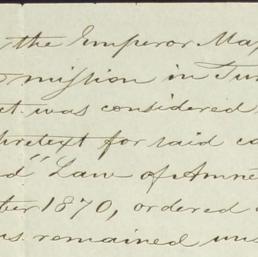 the Emperor Ma
mission in Tu
et was considered
pretext for said ca
d" Law of Amne
ber 1870, ordered
us remained uns